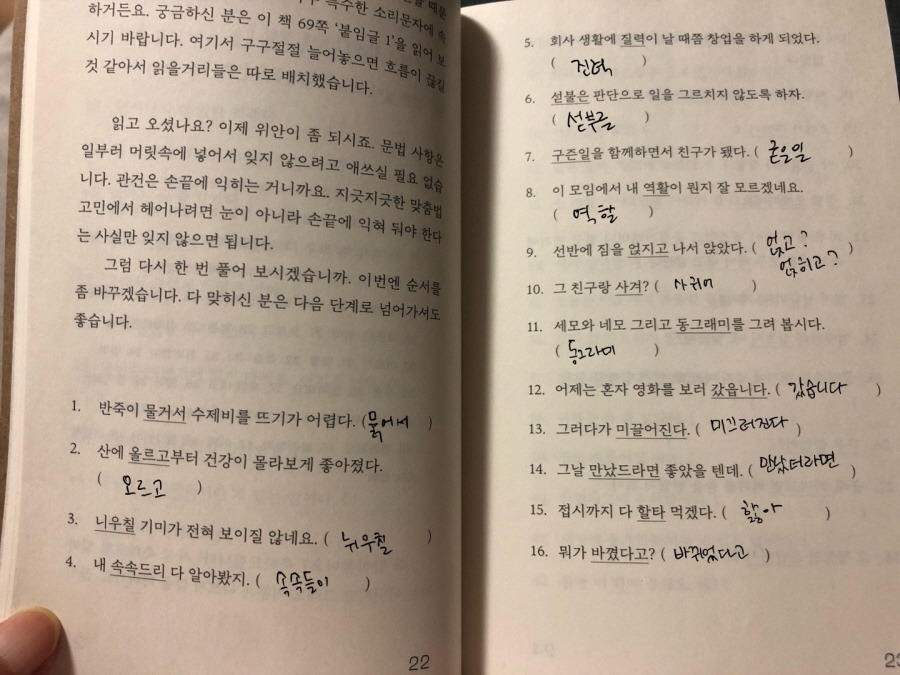 특수한 소리문자에 속
하거든요. 궁금하신 분은 이 책 69쪽 '붙임글 1'을 읽어 보
시기 바랍니다. 여기서 구구절절 늘어놓으면 흐름이 끊길
것 같아서 읽을거리들은 따로 배치했습니다.
읽고 오셨나요? 이제 위안이 좀 되시죠. 문법 사항은
일부러 머릿속에 넣어서 잊지 않으려고 애쓰실 필요 없습
니다. 관건은 손끝에 익히는 거니까요. 지긋지긋한 맞춤법
고민에서 헤어나려면 눈이 아니라 손끝에 익혀 둬야 한다
는 사실만 잊지 않으면 됩니다.
그럼 다시 한 번 풀어 보시겠습니까. 이번엔 순서를
좀 바꾸겠습니다. 다 맞히신 분은 다음 단계로 넘어가셔도
좋습니다.
1. 반죽이 물거서 수제비를 뜨기가 어렵다. (묽어서 )
2. 산에 올르고부터 건강이 몰라보게 좋아졌다.
( 오르고 )
3. 니우칠 기미가 전혀 보이질 않네요. ( 뉘우칠 )
4. 내 속속드리 다 알아봤지. ( 속속들이 )
22
5. 회사 생활에 질력이 날 때쯤 창업을 하게 되었다.
( 진력 )
6. 섣불은 판단으로 일을 그르치지 않도록 하자.
( 섣부른 )
7. 구즌일을 함께하면서 친구가 됐다. ( 궂은일 )
8. 이 모임에서 내 역활이 뭔지 잘 모르겠네요.
( 역할 )
9. 선반에 짐을 얹지고 나서 앉았다. ( 얹고? )
얹히고?
10. 그 친구랑 사겨? ( 사귀어 )
11. 세모와 네모 그리고 동그래미를 그려 봅시다.
( 동그라미 )
12. 어제는 혼자 영화를 보러 갔읍니다. ( 갔습니다 )
13. 그러다가 미끌어진다. ( 미끄러진다 )
14. 그날 만났드라면 좋았을 텐데. ( 만났더라면 )
15. 접시까지 다 할타 먹겠다. ( 핥아 )
16. 뭐가 바꼈다고? ( 바뀌었다고 )